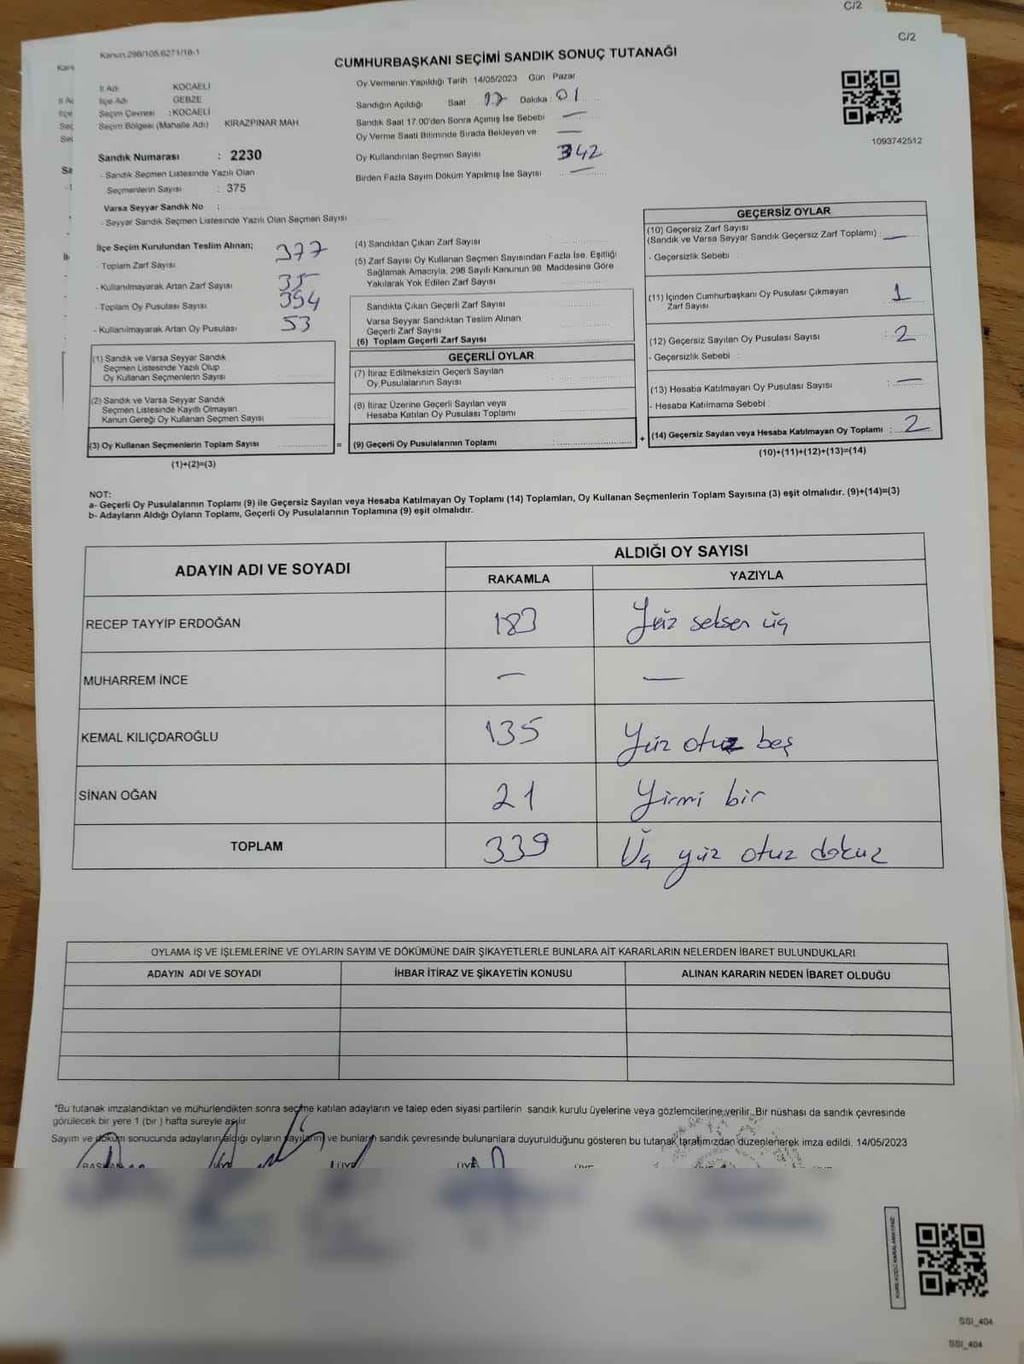 C/2
C/2
Kanun 298/105.6271/18-1
CUMHURBAŞKANI SEÇİMİ SANDIK SONUÇ TUTANAĞI
İl Adı KOCAELİ
İlçe Adı GEBZE
Seçim Çevresi : KOCAELİ
Seçim Bölgesi (Mahalle Adı) KIRAZPINAR MAH
Sandık Numarası : 2230
- Sandık Seçmen Listesinde Yazılı Olan
Seçmenlerin Sayısı : 375
Varsa Seyyar Sandık No :
- Seyyar Sandık Seçmen Listesinde Yazılı Olan Seçmen Sayısı
Oy Vermenin Yapıldığı Tarih 14/05/2023 Gün : Pazar
Sandığın Açıldığı Saat 17 Dakika 01
Sandık Saat 17.00'den Sonra Açımış İse Sebebi —
Oy Verme Saati Bitiminde Sırada Bekleyen ve —
Oy Kullandırılan Seçmen Sayısı 342
Birden Fazla Sayım Döküm Yapılmış İse Sayısı —
1093742512
İlçe Seçim Kurulundan Teslim Alınan;
- Toplam Zarf Sayısı 377
- Kullanılmayarak Artan Zarf Sayısı 35
- Toplam Oy Pusulası Sayısı 394
- Kullanılmayarak Artan Oy Pusulası 53
(1) Sandık ve Varsa Seyyar Sandık
Seçmen Listesinde Yazılı Olup
Oy Kullanan Seçmenlerin Sayısı
(2) Sandık ve Varsa Seyyar Sandık
Seçmen Listesinde Kayıtlı Olmayan
Kanun Gereği Oy Kullanan Seçmen Sayısı
(3) Oy Kullanan Seçmenlerin Toplam Sayısı
(1)+(2)=(3)
(4) Sandıktan Çıkan Zarf Sayısı
(5) Zarf Sayısı Oy Kullanan Seçmen Sayısından Fazla İse, Eşitliği
Sağlamak Amacıyla, 298 Sayılı Kanunun 98. Maddesine Göre
Yakılarak Yok Edilen Zarf Sayısı
Sandıkta Çıkan Geçerli Zarf Sayısı
Varsa Seyyar Sandıktan Teslim Alınan
Geçerli Zarf Sayısı
(6) Toplam Geçerli Zarf Sayısı
GEÇERLİ OYLAR
(7) İtiraz Edilmeksizin Geçerli Sayılan
Oy Pusulalarının Sayısı
(8) İtiraz Üzerine Geçerli Sayılan veya
Hesaba Katılan Oy Pusulası Toplamı
= (9) Geçerli Oy Pusulalarının Toplamı +
GEÇERSİZ OYLAR
(10) Geçersiz Zarf Sayısı
(Sandık ve Varsa Seyyar Sandık Geçersiz Zarf Toplamı) : —
- Geçersizlik Sebebi :
(11) İçinden Cumhurbaşkanı Oy Pusulası Çıkmayan
Zarf Sayısı 1
(12) Geçersiz Sayılan Oy Pusulası Sayısı : 2
- Geçersizlik Sebebi :
(13) Hesaba Katılmayan Oy Pusulası Sayısı : —
- Hesaba Katılmama Sebebi :
(14) Geçersiz Sayılan veya Hesaba Katılmayan Oy Toplamı : 2
(10)+(11)+(12)+(13)=(14)
NOT:
a- Geçerli Oy Pusulalarının Toplamı (9) ile Geçersiz Sayılan veya Hesaba Katılmayan Oy Toplamı (14) Toplamları, Oy Kullanan Seçmenlerin Toplam Sayısına (3) eşit olmalıdır. (9)+(14)=(3)
b- Adayların Aldığı Oyların Toplamı, Geçerli Oy Pusulalarının Toplamına (9) eşit olmalıdır.
ADAYIN ADI VE SOYADI ALDIĞI OY SAYISI
RAKAMLA YAZIYLA
RECEP TAYYİP ERDOĞAN 183 Yüz seksen üç
MUHARREM İNCE — —
KEMAL KILIÇDAROĞLU 135 Yüz otuz beş
SİNAN OĞAN 21 Yirmi bir
TOPLAM 339 Üç yüz otuz dokuz
OYLAMA İŞ VE İŞLEMLERİNE VE OYLARIN SAYIM VE DÖKÜMÜNE DAİR ŞİKAYETLERLE BUNLARA AİT KARARLARIN NELERDEN İBARET BULUNDUKLARI
ADAYIN ADI VE SOYADI İHBAR İTİRAZ VE ŞİKAYETİN KONUSU ALINAN KARARIN NEDEN İBARET OLDUĞU
*Bu tutanak imzalandıktan ve mühürlendikten sonra seçime katılan adayların ve talep eden siyasi partilerin sandık kurulu üyelerine veya gözlemcilerine verilir. Bir nüshası da sandık çevresinde
görülecek bir yere 1 (bir) hafta süreyle asılır
Sayım ve döküm sonucunda adayların aldığı oyların sayılarını ve bunların sandık çevresinde bulunanlara duyurulduğunu gösteren bu tutanak tarafımızdan düzenlenerek imza edildi. 14/05/2023
SSI_404
SSI_404